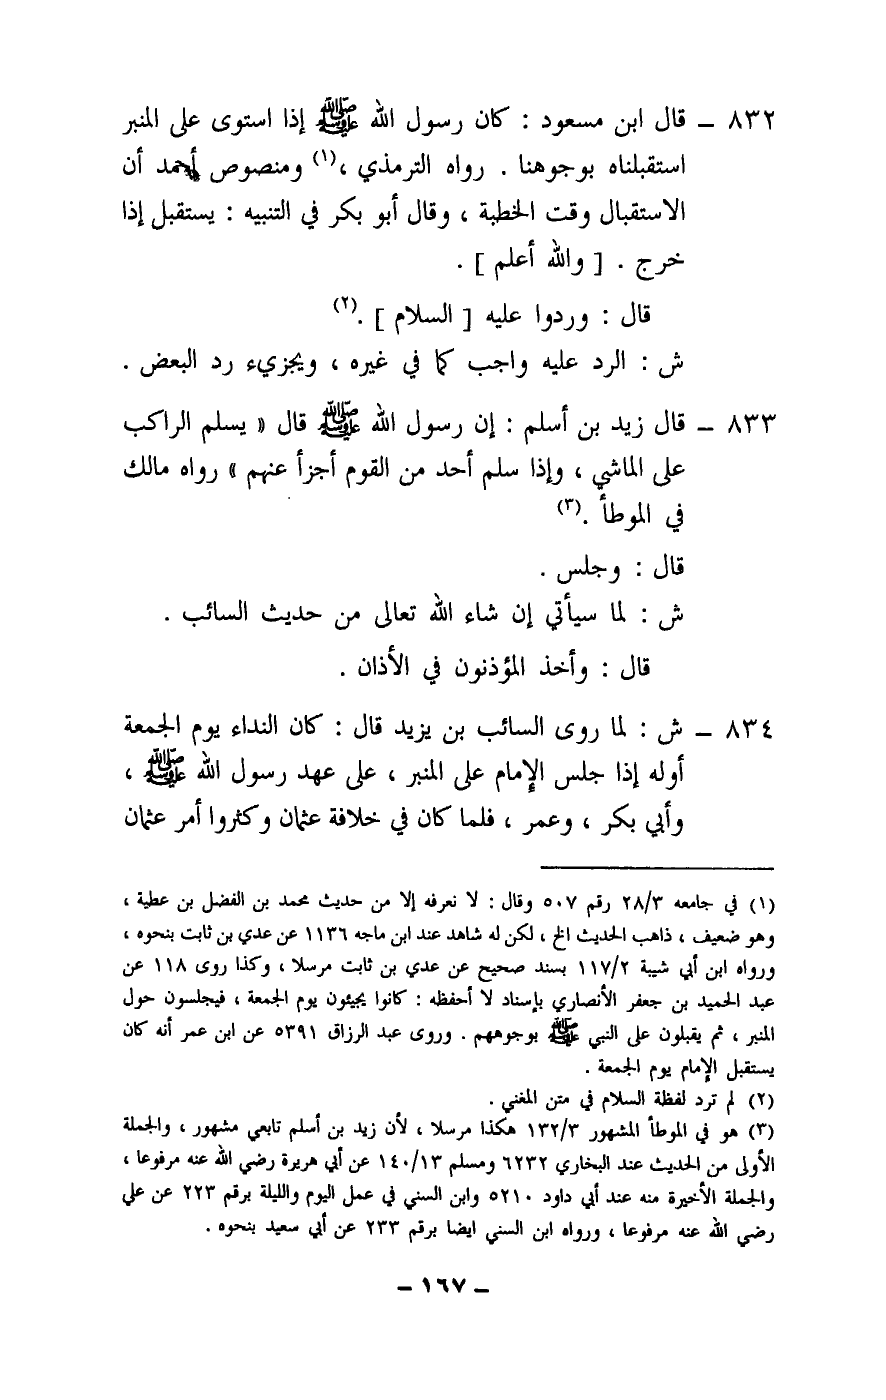 ٨٣٢ ـ قال ابن مسعود : كان رسول الله ﷺ إذا استوى على المنبر
استقبلناه بوجوهنا . رواه الترمذي ،(١) ومنصوص أحمد أن
الاستقبال وقت الخطبة ، وقال أبو بكر في التنبيه : يستقبل إذا
خرج . [ والله أعلم ] .
قال : وردوا عليه [ السلام ] .(٢)
ش : الرد عليه واجب كما في غيره ، ويجزيء رد البعض .
٨٣٣ ـ قال زيد بن أسلم : إن رسول الله ﷺ قال « يسلم الراكب
على الماشي ، وإذا سلم أحد من القوم أجزأ عنهم » رواه مالك
في الموطأ .(٣)
قال : وجلس .
ش : لما سيأتي إن شاء الله تعالى من حديث السائب .
قال : وأخذ المؤذنون في الأذان .
٨٣٤ ـ ش : لما روى السائب بن يزيد قال : كان النداء يوم الجمعة
أوله إذا جلس الإمام على المنبر ، على عهد رسول الله ﷺ ،
وأبي بكر ، وعمر ، فلما كان في خلافة عثمان وكثروا أمر عثمان
(١) في جامعه ٢٨/٣ رقم ٥٠٧ وقال : لا نعرفه إلا من حديث محمد بن الفضل بن عطية ،
وهو ضعيف ، ذاهب الحديث الخ ، لكن له شاهد عند ابن ماجه ١١٣٦ عن عدي بن ثابت بنحوه ،
ورواه ابن أبي شيبة ١١٧/٢ بسند صحيح عن عدي بن ثابت مرسلا ، وكذا روى ١١٨ عن
عبد الحميد بن جعفر الأنصاري بإسناد لا أحفظه : كانوا يجيئون يوم الجمعة ، فيجلسون حول
المنبر ، ثم يقبلون على النبي ﷺ بوجوههم . وروى عبد الرزاق ٥٣٩١ عن ابن عمر أنه كان
يستقبل الإمام يوم الجمعة .
(٢) لم ترد لفظة السلام في متن المغني .
(٣) هو في الموطأ المشهور ١٣٢/٣ هكذا مرسلا ، لأن زيد بن أسلم تابعي مشهور ، والجملة
الأولى من الحديث عند البخاري ٦٢٣٢ ومسلم ١٤٠/١٣ عن أبي هريرة رضي الله عنه مرفوعا ،
والجملة الأخيرة منه عند أبي داود ٥٢١٠ وابن السني في عمل اليوم والليلة برقم ٢٢٣ عن علي
رضي الله عنه مرفوعا ، ورواه ابن السني ايضا برقم ٢٣٣ عن أبي سعيد بنحوه .
ـ ١٦٧ ـ